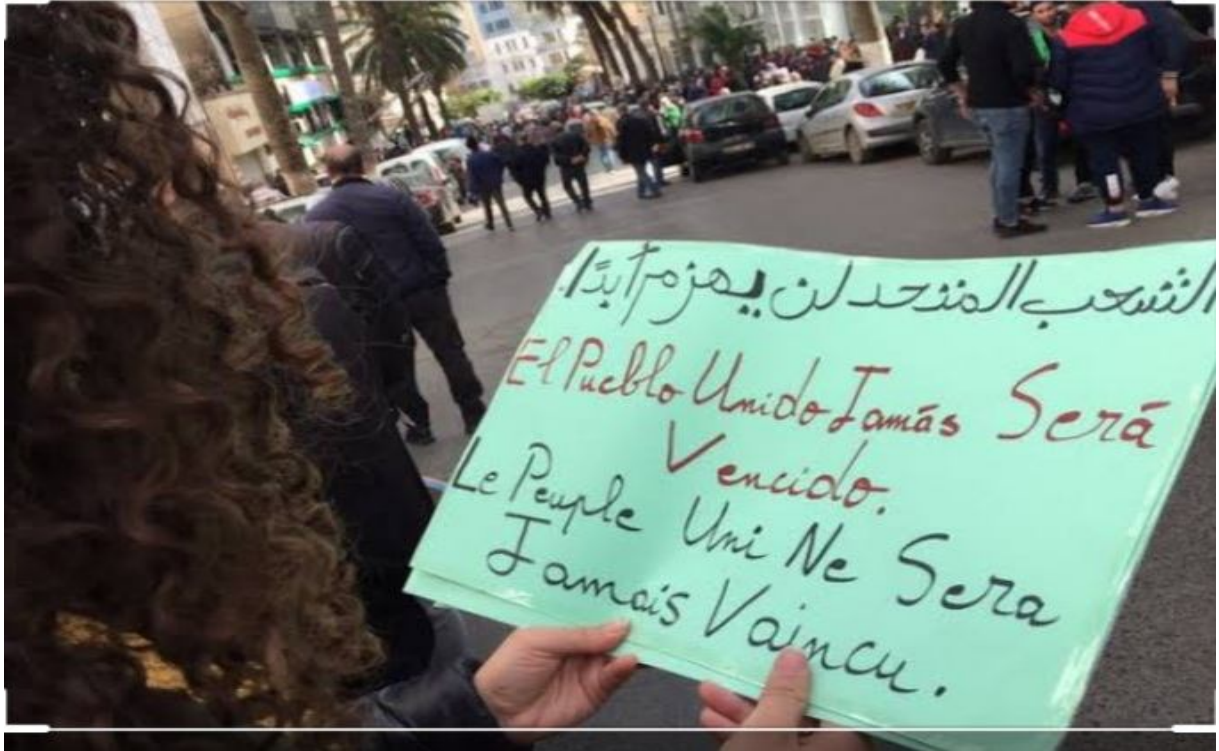 الشعب المتحد لن يهزم أبدًا.
El Pueblo Unido Jamás Será
Vencido.
Le Peuple Uni Ne Sera
Jamais Vaincu.